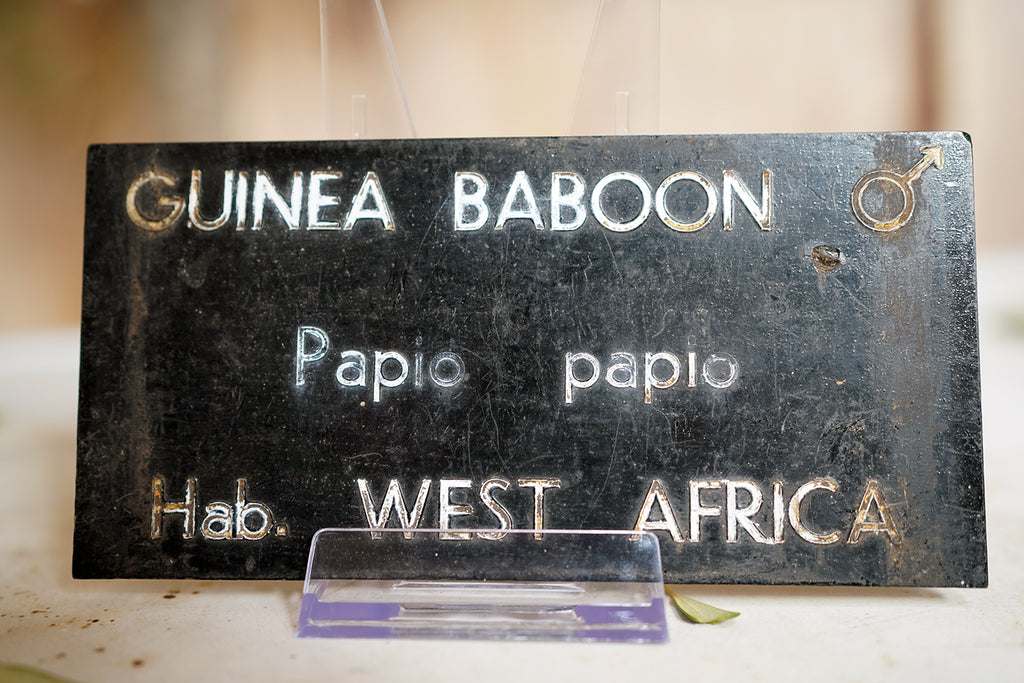 GUINEA BABOON ♂
Papio papio
Hab. WEST AFRICA